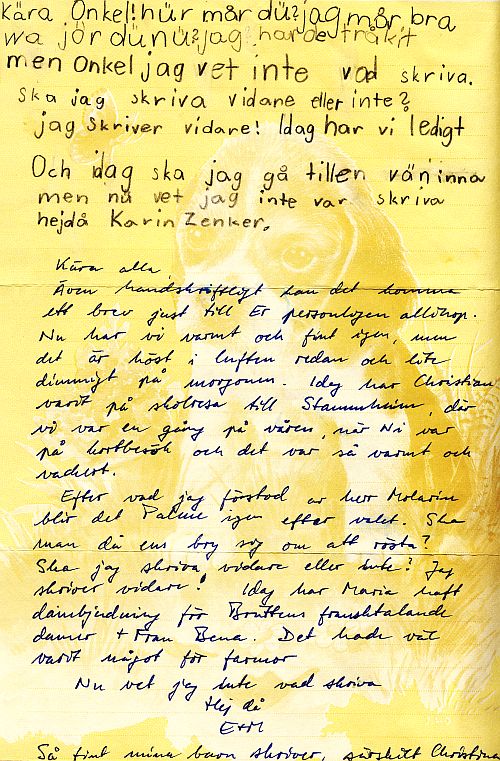 Kära Onkel! hür mår dü? jag mår bra
wa jör dü nü? jag harde tråkit
men Onkel jag vet inte vad skriva.
Ska jag skriva vidare eller inte?
jag skriver vidare! Idag har vi ledigt
Och idag ska jag gå till en väninna
men nu vet jag inte var skriva
hejdå Karin Zenker.
Kära alla,
Även handskriftligt kan det komma
ett brev just till Er personligen allihop.
Nu har vi varmt och fint igen, men
det är höst i luften redan och lite
dimmigt på morgonen. Idag har Christian
varit på skolresa till Stammheim, där
vi var en gång på våren, när Ni var
på kortbesök och det var så varmt och
vackert.
Efter vad jag förstod av herr Molarin
blir det Palme igen efter valet. Ska
man då ens bry sig om att rösta?
Ska jag skriva vidare eller inte? Jag
skriver vidare! Idag har Maria haft
dambjudning för Bruttens fransktalande
damer + Frau Bena. Det hade väl
varit något för farmor
Nu vet jag inte vad skriva
Hej då
E+M
Så fint mina barn skriver, särskilt Christina